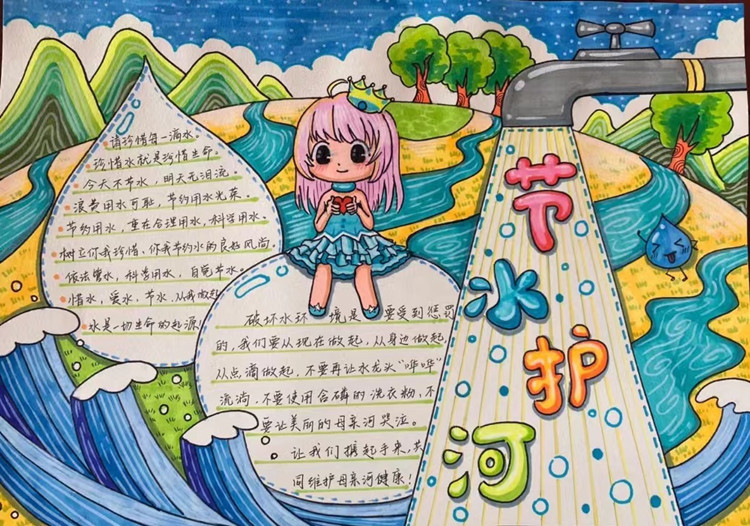 请珍惜每一滴水。
珍惜水就是珍惜生命。
今天不节水，明天无泪流。
浪费用水可耻，节约用水光荣。
节约用水，重在合理用水，科学用水。
树立你我珍惜、你我节约水的良好风尚。
依法管水，科学用水，自觉节水。
惜水，爱水，节水，从我做起
水是一切生命的起源
破坏水环境是要受到惩罚
的，我们要从现在做起，从身边做起，
从点滴做起，不要再让水龙头“哗哗”
流淌，不要使用含磷的洗衣粉，不
要让美丽的母亲河哭泣。
让我们携起手来，共
同维护母亲河健康！
节
水
护
河